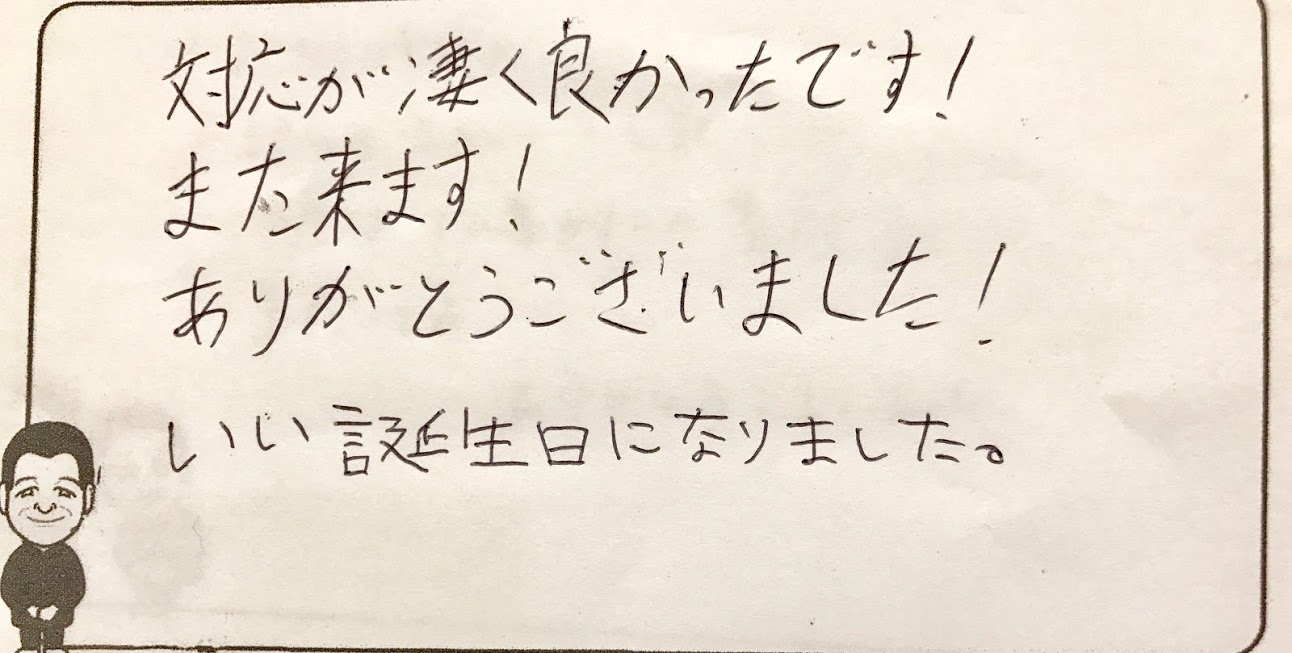 対応が凄く良かったです!
また来ます!
ありがとうございました!
いい誕生日になりました。